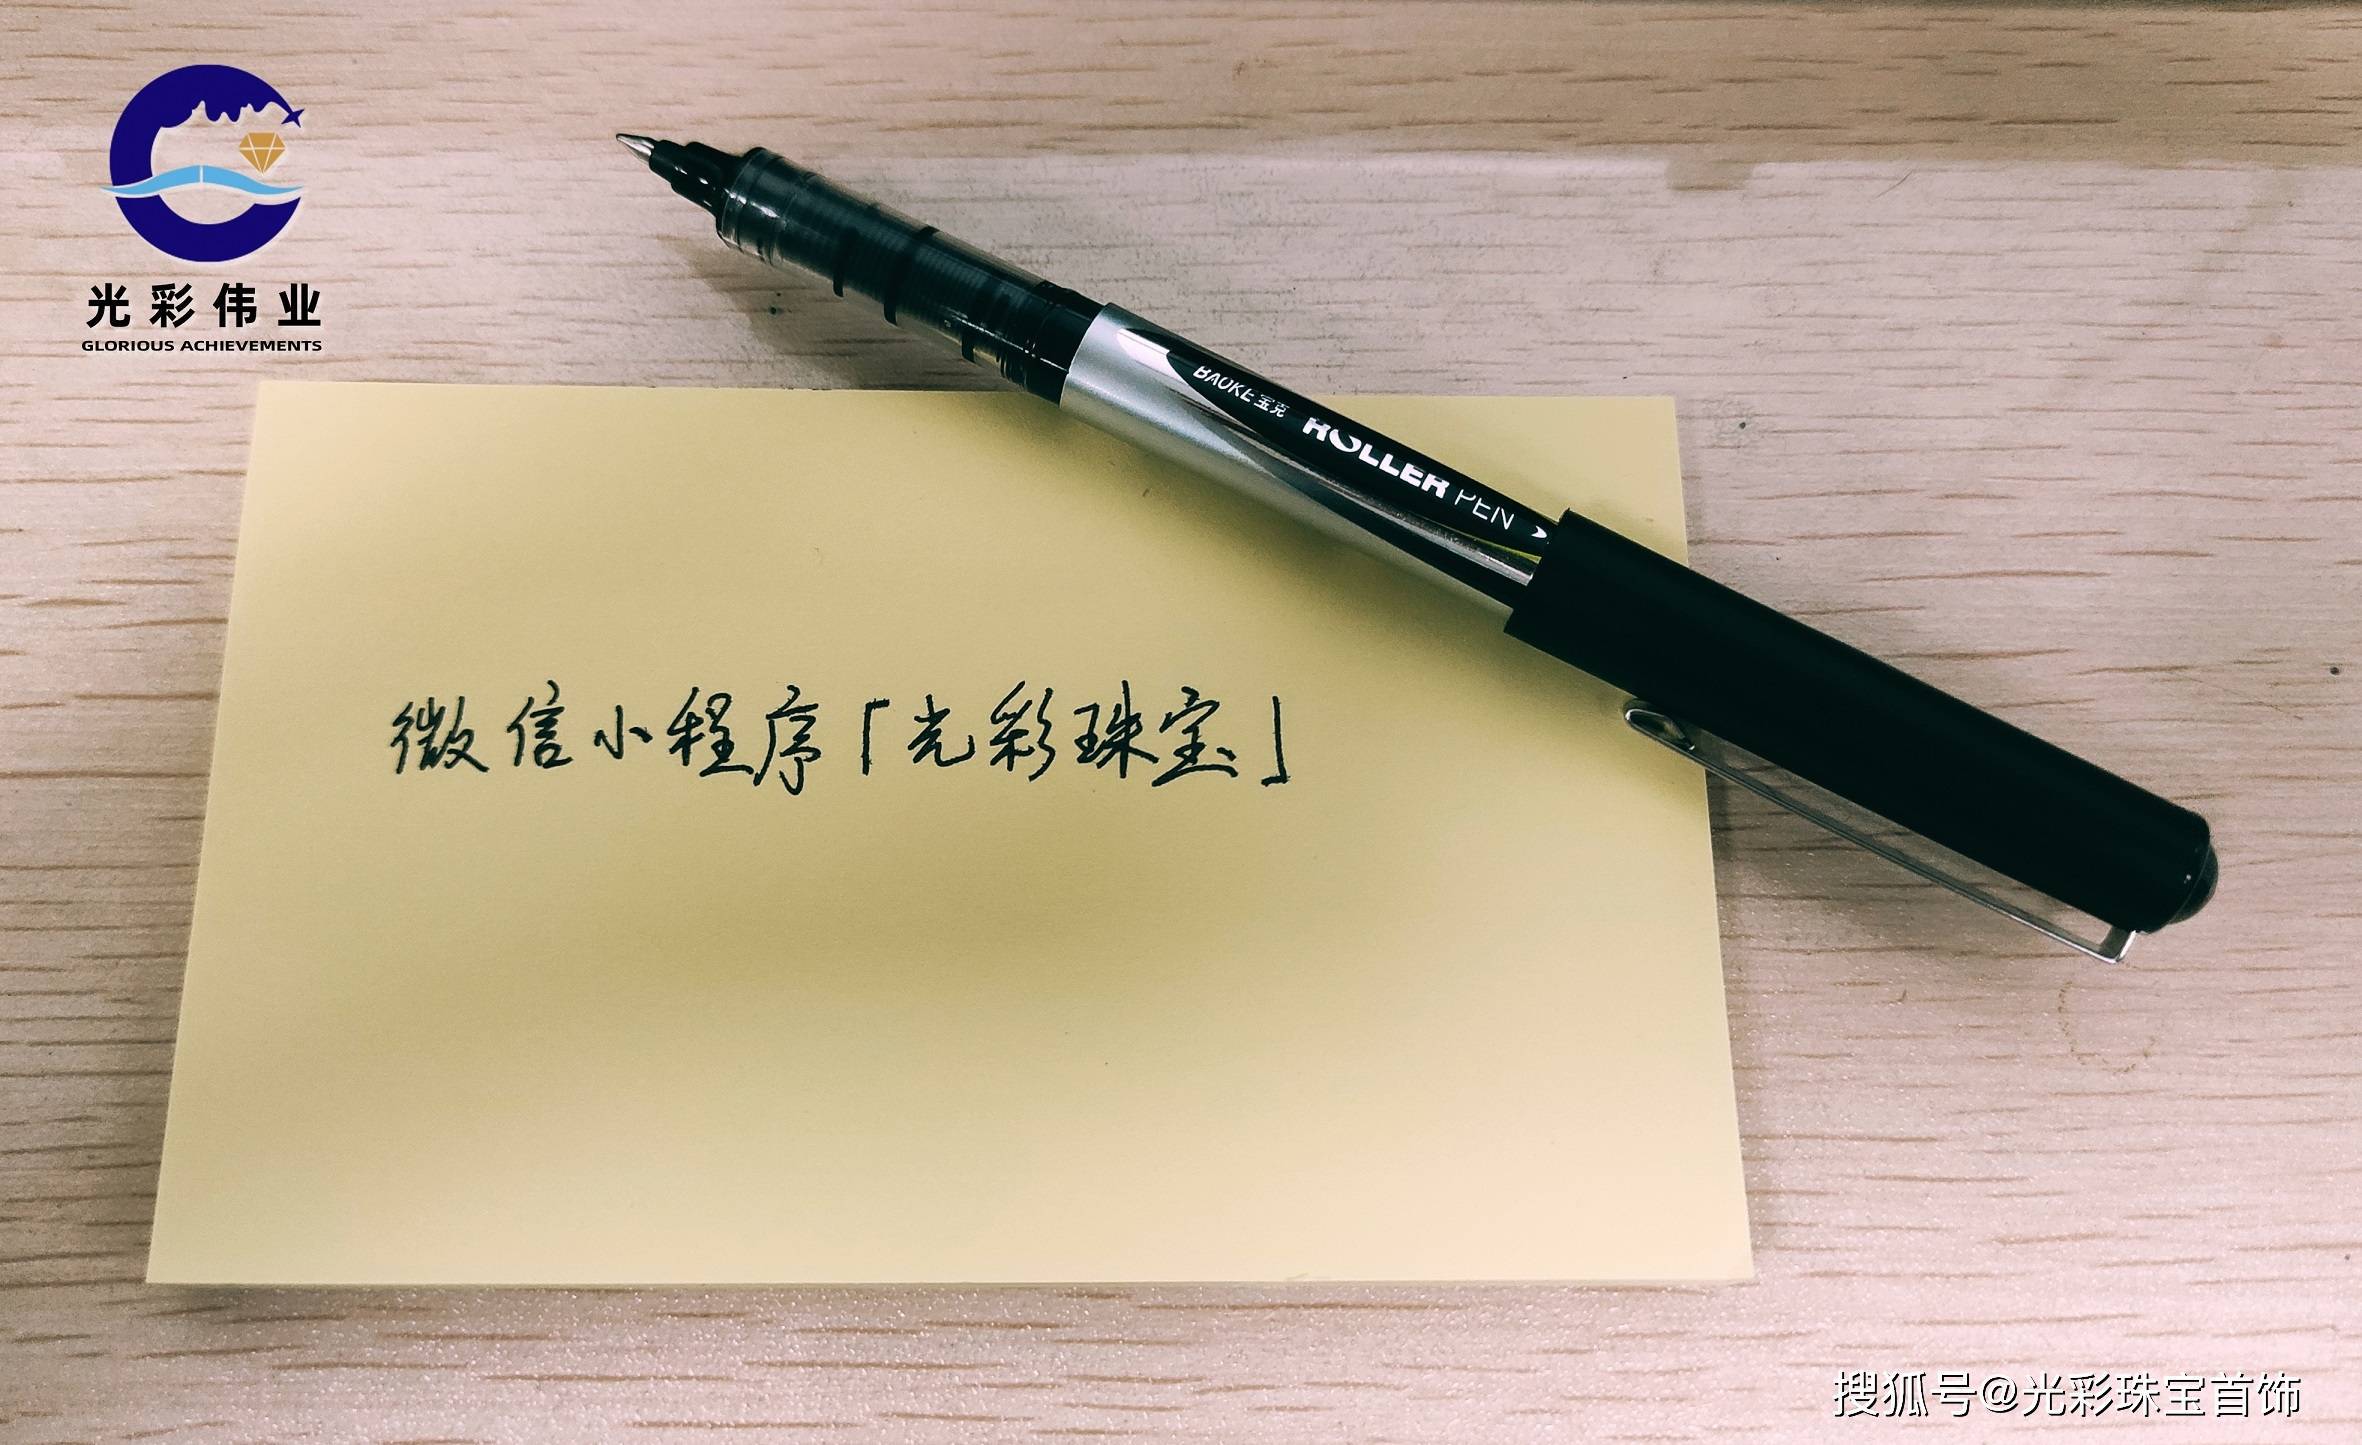 光彩伟业
GLORIOUS ACHIEVEMENTS
BAOKE 宝克 ROLLER PEN
微信小程序「光彩珠宝」
搜狐号@光彩珠宝首饰